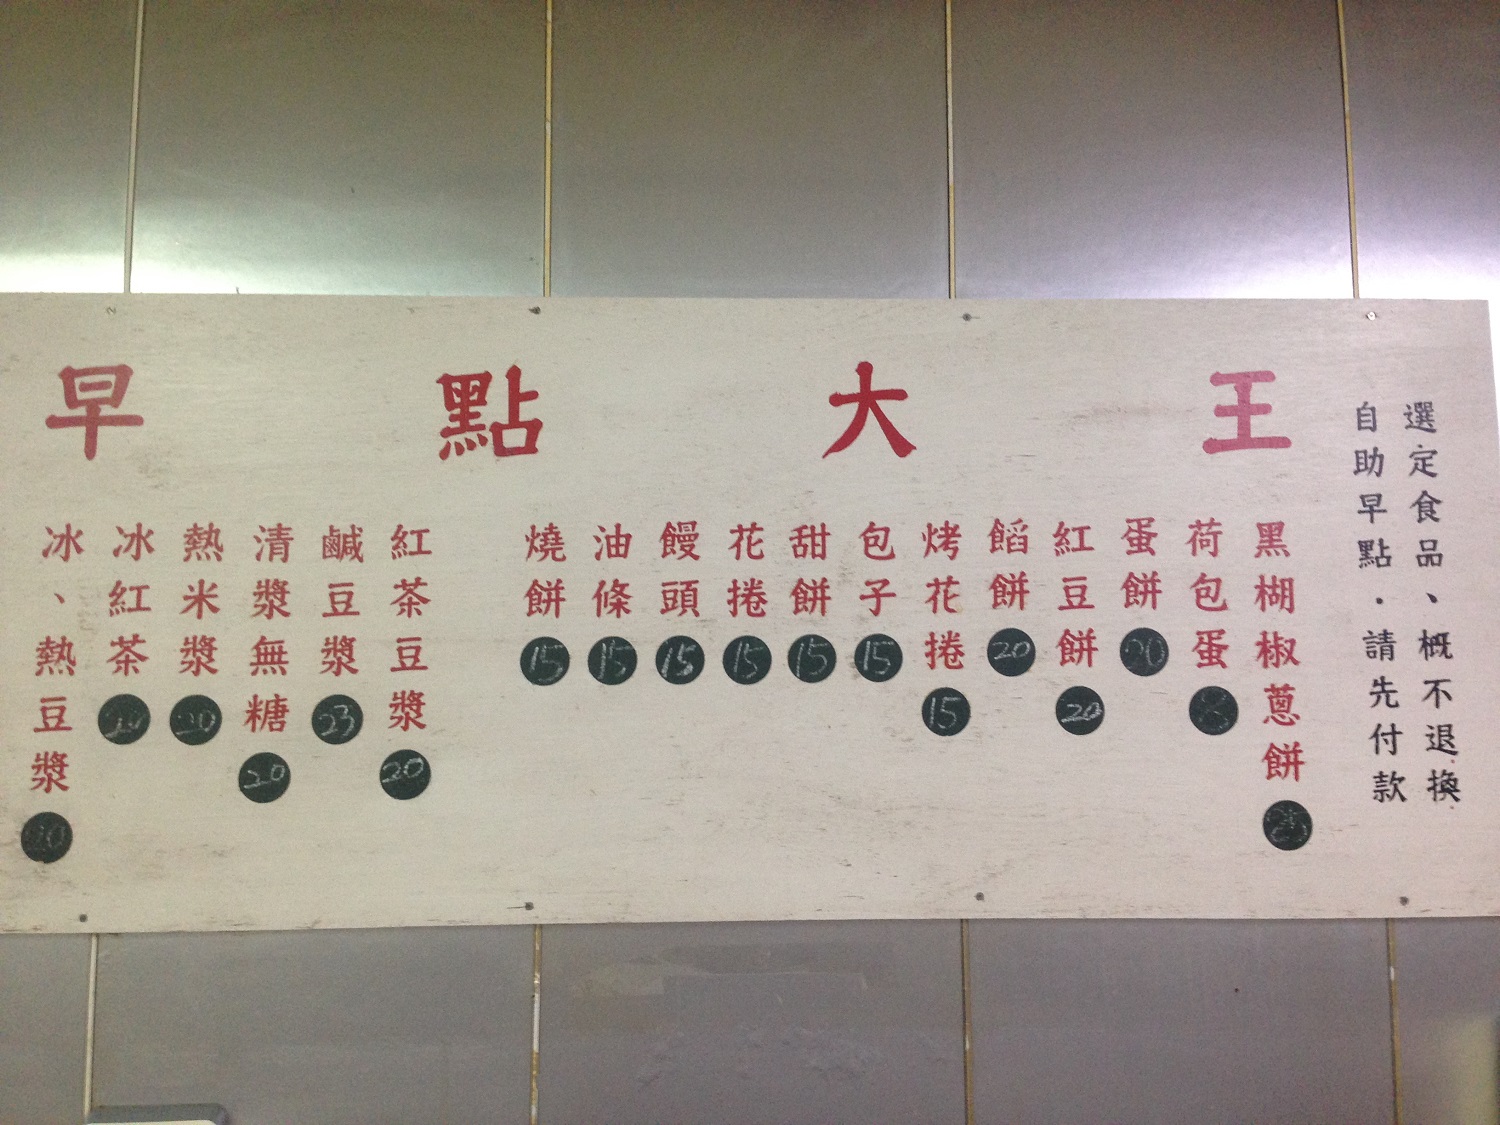 早點大王
冰、熱豆漿 20
冰紅茶 20
熱米漿 20
清漿無糖 20
鹹豆漿 23
紅茶豆漿 20
燒餅 15
油條 15
饅頭 15
花捲 15
甜餅 15
包子 15
烤花捲 15
餡餅 20
紅豆餅 20
蛋餅 20
荷包蛋
黑楜椒蔥餅
選定食品、概不退換
自助早點．請先付款